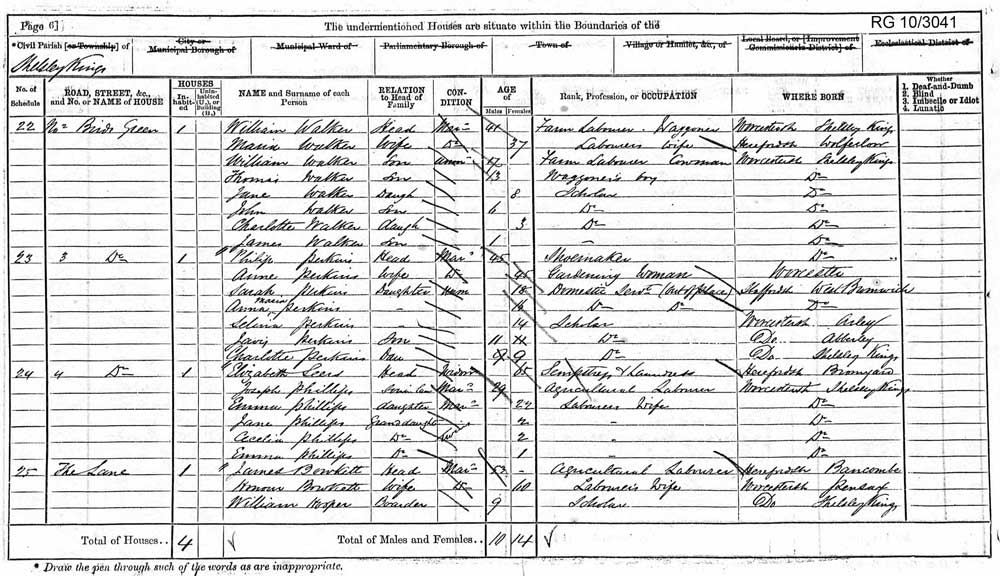 Page 6]
The undermentioned Houses are situate within the Boundaries of the
RG 10/3041
*Civil Parish [or Township] of
City or Municipal Borough of
Municipal Ward of
Parliamentary Borough of
Town of
Village or Hamlet, &c., of
Local Board, or [Improvement Commissioners District] of
Ecclesiastical District of
Shelsley Kings
No. of Schedule
ROAD, STREET, &c., and No. or NAME of HOUSE
HOUSES
In-habit-ed
Unin-habited (U.), or Building (B.)
NAME and Surname of each Person
RELATION to Head of Family
CON-DITION
AGE of
Males
Females
Rank, Profession, or OCCUPATION
WHERE BORN
Whether
1. Deaf-and-Dumb
2. Blind
3. Imbecile or Idiot
4. Lunatic
22 Birds Green 1 William Walker Head Mar 41 Farm Labourer Waggoner Worcestersh Shelsley Kings
Maria Walker Wife Do 37 Labourers Wife Herefordsh Wolferlow
William Walker Son 17 Farm Labourer Cowman Worcestersh Shelsley Kings
Thomas Walker Son 13 Waggoner's boy Do
Jane Walker Daugh 8 Scholar Do
John Walker Son 6 Do Do
Charlotte Walker daugh 3 Do Do
James Walker Son 1 - Do
23 3 Do 1 Philip Perkins Head Mar 45 Shoemaker Do
Anne Perkins Wife Do 45 Gardening Woman Worcester
Sarah Perkins Daughter Unm 18 Domestic Servt (Out of place) Staffordsh West Bromwich
Anna Maria Perkins - 16 Do Do Do
Selina Perkins 14 Scholar Worcestersh Arley
Perkins Son 11 Do Do Abberley
Charlotte Perkins Dau 9 Do Do Shelsley Kings
24 4 Do 1 Elizabeth Head Widow 65 Sempstress & Laundress Herefordsh Bromyard
Joseph Phillips Son in law Mar 29 Agricultural Labourer Worcestersh Shelsley Kings
Emma Phillips daughter Mar 24 Labourers Wife Do
Jane Phillips Granddaughter 2 Do
Cecelia Phillips Do 2 Do
Emma Phillips Do 1 Do
25 The Lane 1 James Bowkett Head Mar 53 - Agricultural Labourer Herefordsh
Honour Bowkett Wife Do 60 Labourer's Wife Worcestersh Pensax
William Boarder 9 Scholar Do Shelsley Kings
Total of Houses.. 4 Total of Males and Females.. 10 14
* Draw the pen through such of the words as are inappropriate.